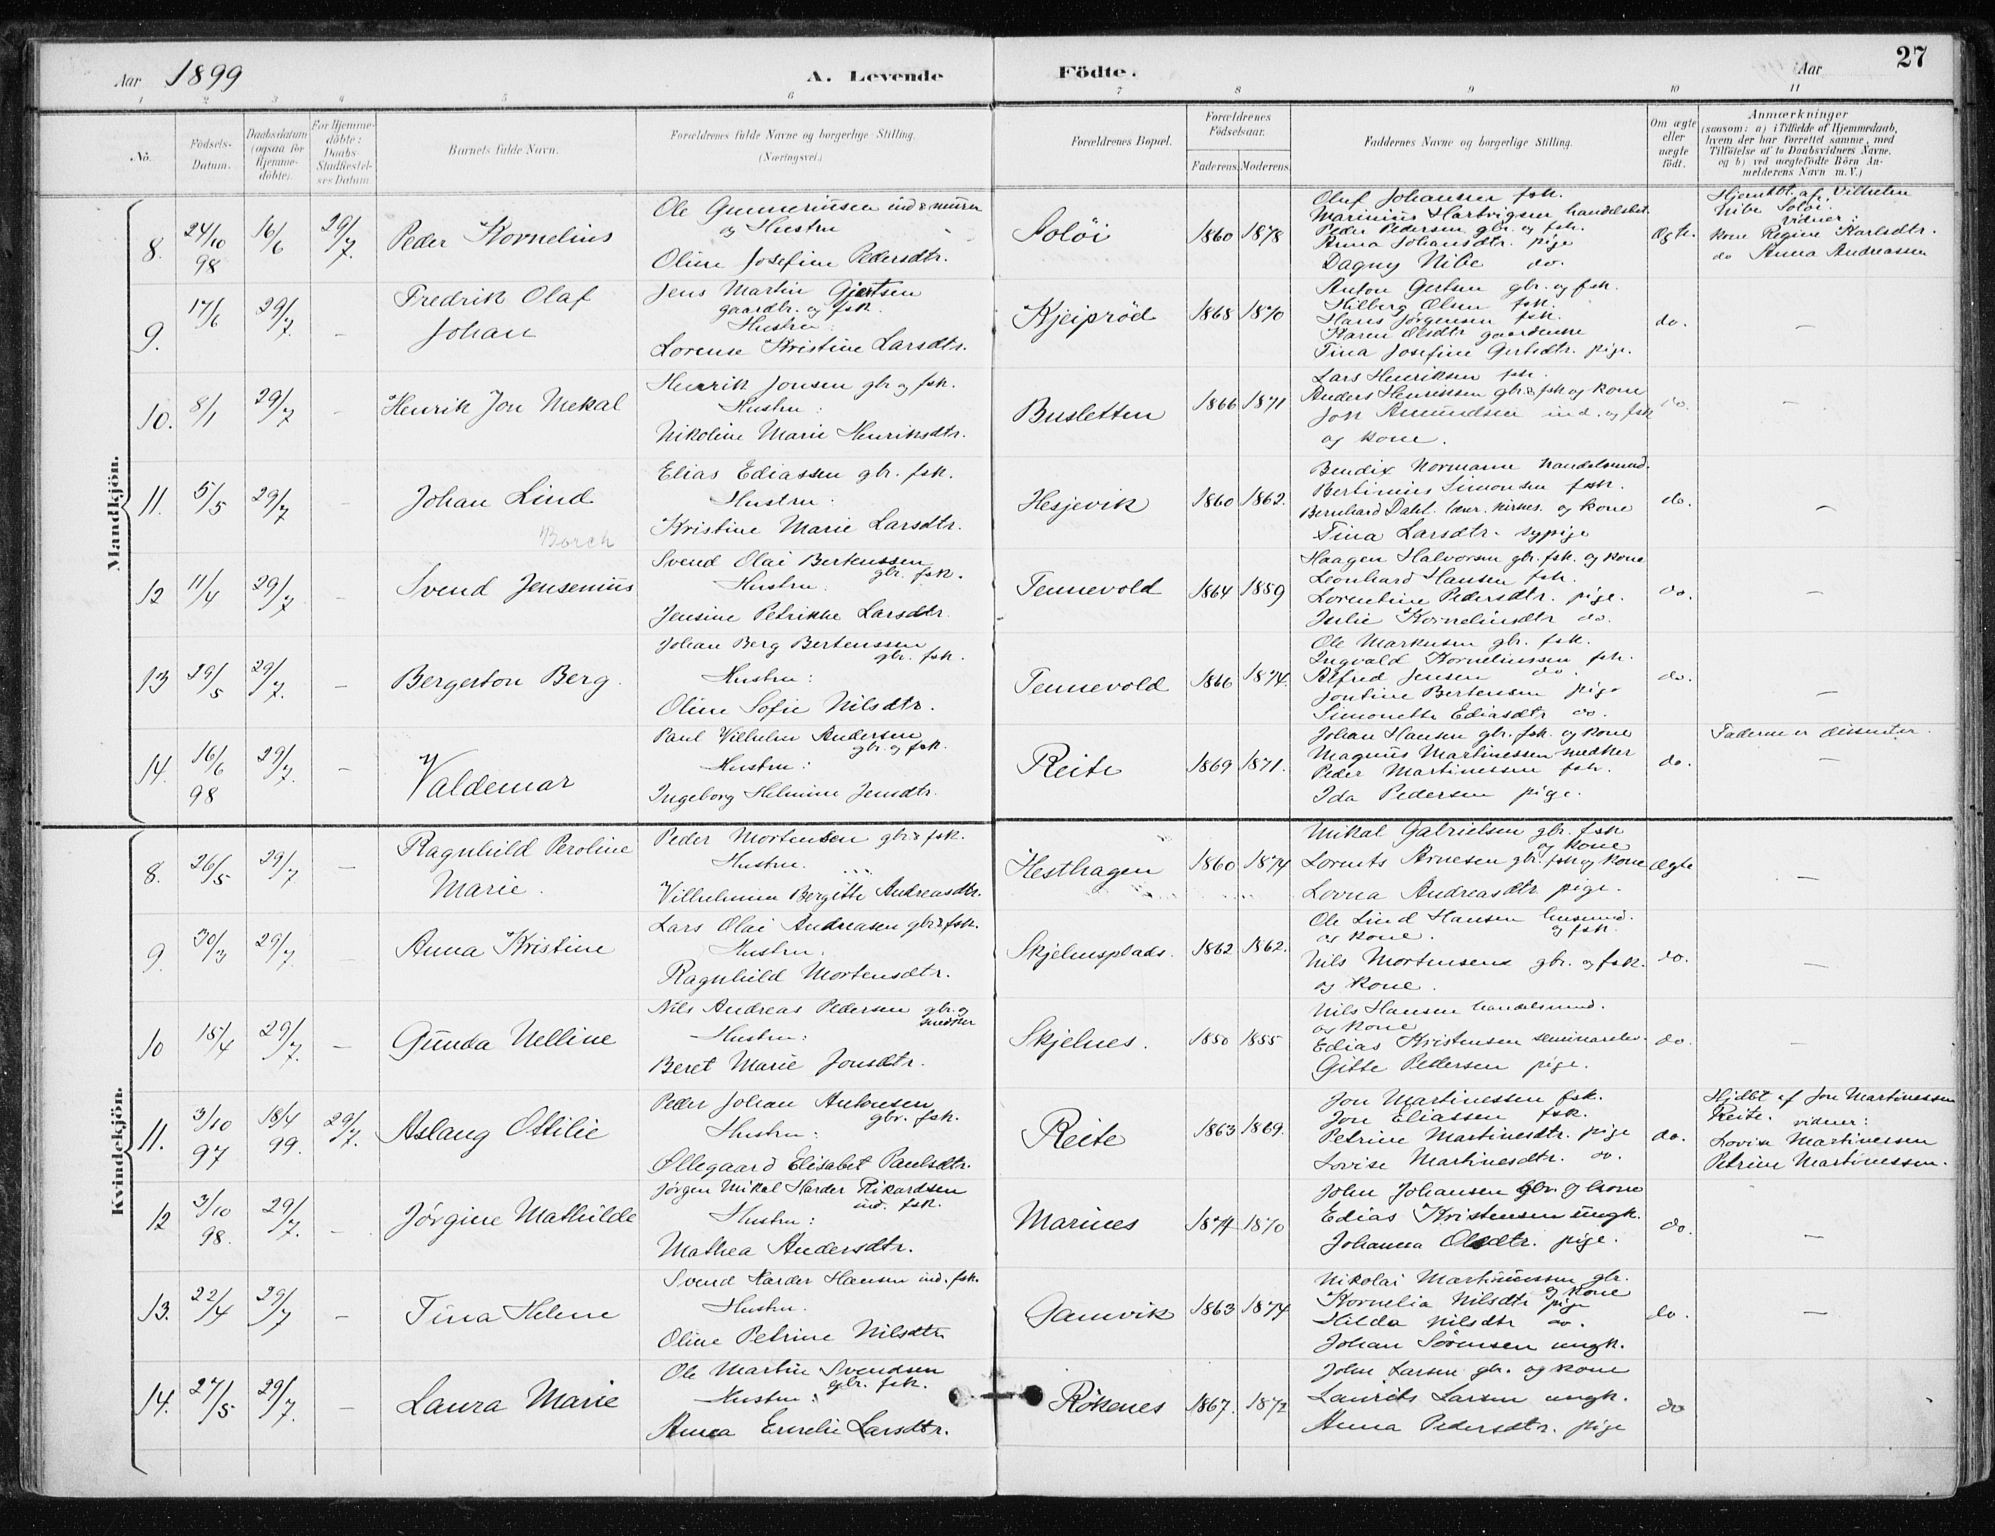 27
Aar 1899 A. Levende Födte. Aar
1 2 3 4 5 6 7 8 9 10 11
No. Födsels-Datum. Daabsdatum (ogsaa for Hjemme-döbte). For Hjemme-döbte: Daabs-Stadfæstel-ses Datum Barnets fulde Navn. Forældrenes fulde Navne og borgerlige Stilling. (Næringsvei.) Forældrenes Bopæl. Forældrenes Födselsaar. Faderens Moderens Faddernes Navne og borgerlige Stilling. Om ægte eller uægte födt. Anmærkninger (saasom: a) i Tilfælde af Hjemmedaab, hvem der har forrettet samme, med Tilföielse af to Daabsvidners Navne. og b) ved uægtefödte Börn An-melderens Navn m. V.)
Mandkjön.
8. 24/10 98 16/6 29/7. Peder Kornelius
Ole Gunneriussen ind & murer
og Hustru
Oline Josefine Pedersdtr.
Soløi 1860 1878
Oluf Johansen fsk.
Marinius Hartvigsen handelsbet.
Peder Pedersen gbr. og fsk.
Anna Johansdtr. pige
Dagny Nibe do.
Ægte.
Hjemdbt. af Vilhelm
Nibe Soløi.
vidner:
kone Regine Karlsdtr.
do Anna Andreassen
9. 17/6 29/7. – Fredrik Olaf
Johan
Jens Martin Gjertsen
gaardbr. og fsk.
Hustru:
Lorense Kristine Larsdtr.
Kjeiprød 1868 1870
Anton Gertsen gbr. og fsk.
Hilberg Olsen fsk.
Hans Jørgensen fsk.
Karen Olsdtr gaardenke
Tina Josefine Gertsdtr. pige.
do. –
10. 8/1 29/7 – Henrik Jon Mekal
Henrik Jonsen gbr og fsk.
Hustru:
Nikoline Marie Henriksdtr.
Busletten 1866 1871
Lars Henriksen fsk.
Anders Henriksen gbr. & fsk og kone
Joh Amundsen ind. og fsk
og kone.
do. –
11. 5/5 29/7 – Johan Lind
Borch
Elias Ediassen gbr. fsk.
Hustru:
Kristine Marie Larsdtr.
Hesjevik 1860 1862.
Bendix Normann handelsmd.
Bertinius Simonsen fsk.
Bernhard Dahl. lærer. Nirnes. og kone
Tina Larsdtr. sypige
do. –
12 11/4 29/7 – Svend Jensenius
Svend Olai Berteussen
gbr. fsk.
Hustru.
Jensine Petrikke Larsdtr.
Tennevold 1864 1859
Haagen Halvorsen gbr. fsk. og kone
Leonhard Hansen fsk.
Lorentine Pedersdtr. pige.
Julie Kornelinsdtr do.
do. –
13 29/5 29/7. – Bergerton Berg.
Johan Berg Berteussen
gbr. fsk.
Hustru:
Oline Sofie Nilsdtr.
Tennevold 1866 1874.
Ole Markusen gbr. fsk.
Ingvald Korneliussen fsk.
Alfred Jensen do.
Jontine Bertensen pige
Simonette Ediasdtr do.
do. –
14. 16/6 98 29/7. – Valdemar
Paul Vilhelm Andersen
gbr. og fsk.
Hustru:
Ingeborg Helmine Jensdtr.
Reite 1869 1871.
Johan Hansen gbr. fsk. og kone
Magnus Martinessen snedker
Peder Martinessen fsk.
Ida Pedersen pige.
do.
Faderen er dissenter.
–
Kvindekjön.
8. 26/5 29/7. – Ragnhild Peroline
Marie.
Peder Mortensen gbr & fsk.
Hustru.
Vilhelmina Bergitte Andreasdtr.
Hesthagen 1860 1874
Mikal Gabrielsen gbr. fsk
og kone
Lorents Arnesen gbr. fsk og kone
Lovna Andreasdtr. pige.
Ægte –
9. 30/3 29/7. – Anna Kristine
Lars Olai Andreasen gbr & fsk.
Hustru:
Ragnhild Mortensdtr.
Skjelnesplads. 1862 1862.
Ole Lind Hansen husmd.
og kone. og fsk.
Nils Mortensens gbr. og fsk.
og kone.
do. –
10 18/4 29/7. – Gunda Nelline
Nils Andreas Pedersen gbr. og
snedker
Hustru:
Beret Marie Jonsdtr.
Skjelnes. 1850 1855
Nils Hansen handelsmd.
og kone
Edias Kristensen seminarelev.
Gitte Pedersen pige.
do. –
11. 3/10 97 18/4 99. 29/7. Aslaug Ottilie
Peder Johan Antonsen
gbr. fsk.
Hustru:
Øllegaard Elisabet Paulsdtr.
Reite 1863 1869.
Jon Martinessen fsk.
Jon Eliassen fsk.
Petrine Martinesdtr. pige
Lovise Martinesdtr. do.
do.
Hjdbt af Jon Martinessen
Reite.
vidner:
Lovise Martinessen
Petrine Martinessen.
12 3/10 98. 29/7. – Jørgine Mathilde
Jørgen Mikal Harder Rikardsen
ind. fsk.
Hustru:
Mathea Andersdtr.
Marines 1874 1870
John Johansen gbr. og kone
Edias Kristensen ungk.
Johanna Olsdtr. pige.
do. –
13. 22/4 29/7 – Tina Helene
Svend Harder Hansen ind. fsk.
Hustru.
Oline Petrine Nilsdtr
Gamvik 1863 1874
Nikolai Martinussen gbr.
og kone
Kornelia Nilsdtr pige
Hilda Nilsdtr do.
Johan Sørensen ungk.
do. –
14. 27/5 29/7. – Laura Marie
Ole Martin Svendsen
gbr. fsk.
Hustru:
Anna Emelie Larsdtr.
Røkenes 1867. 1872
John Larsen gbr. og kone
Laurits Larsen ungk.
Anna Pedersdtr. pige
do